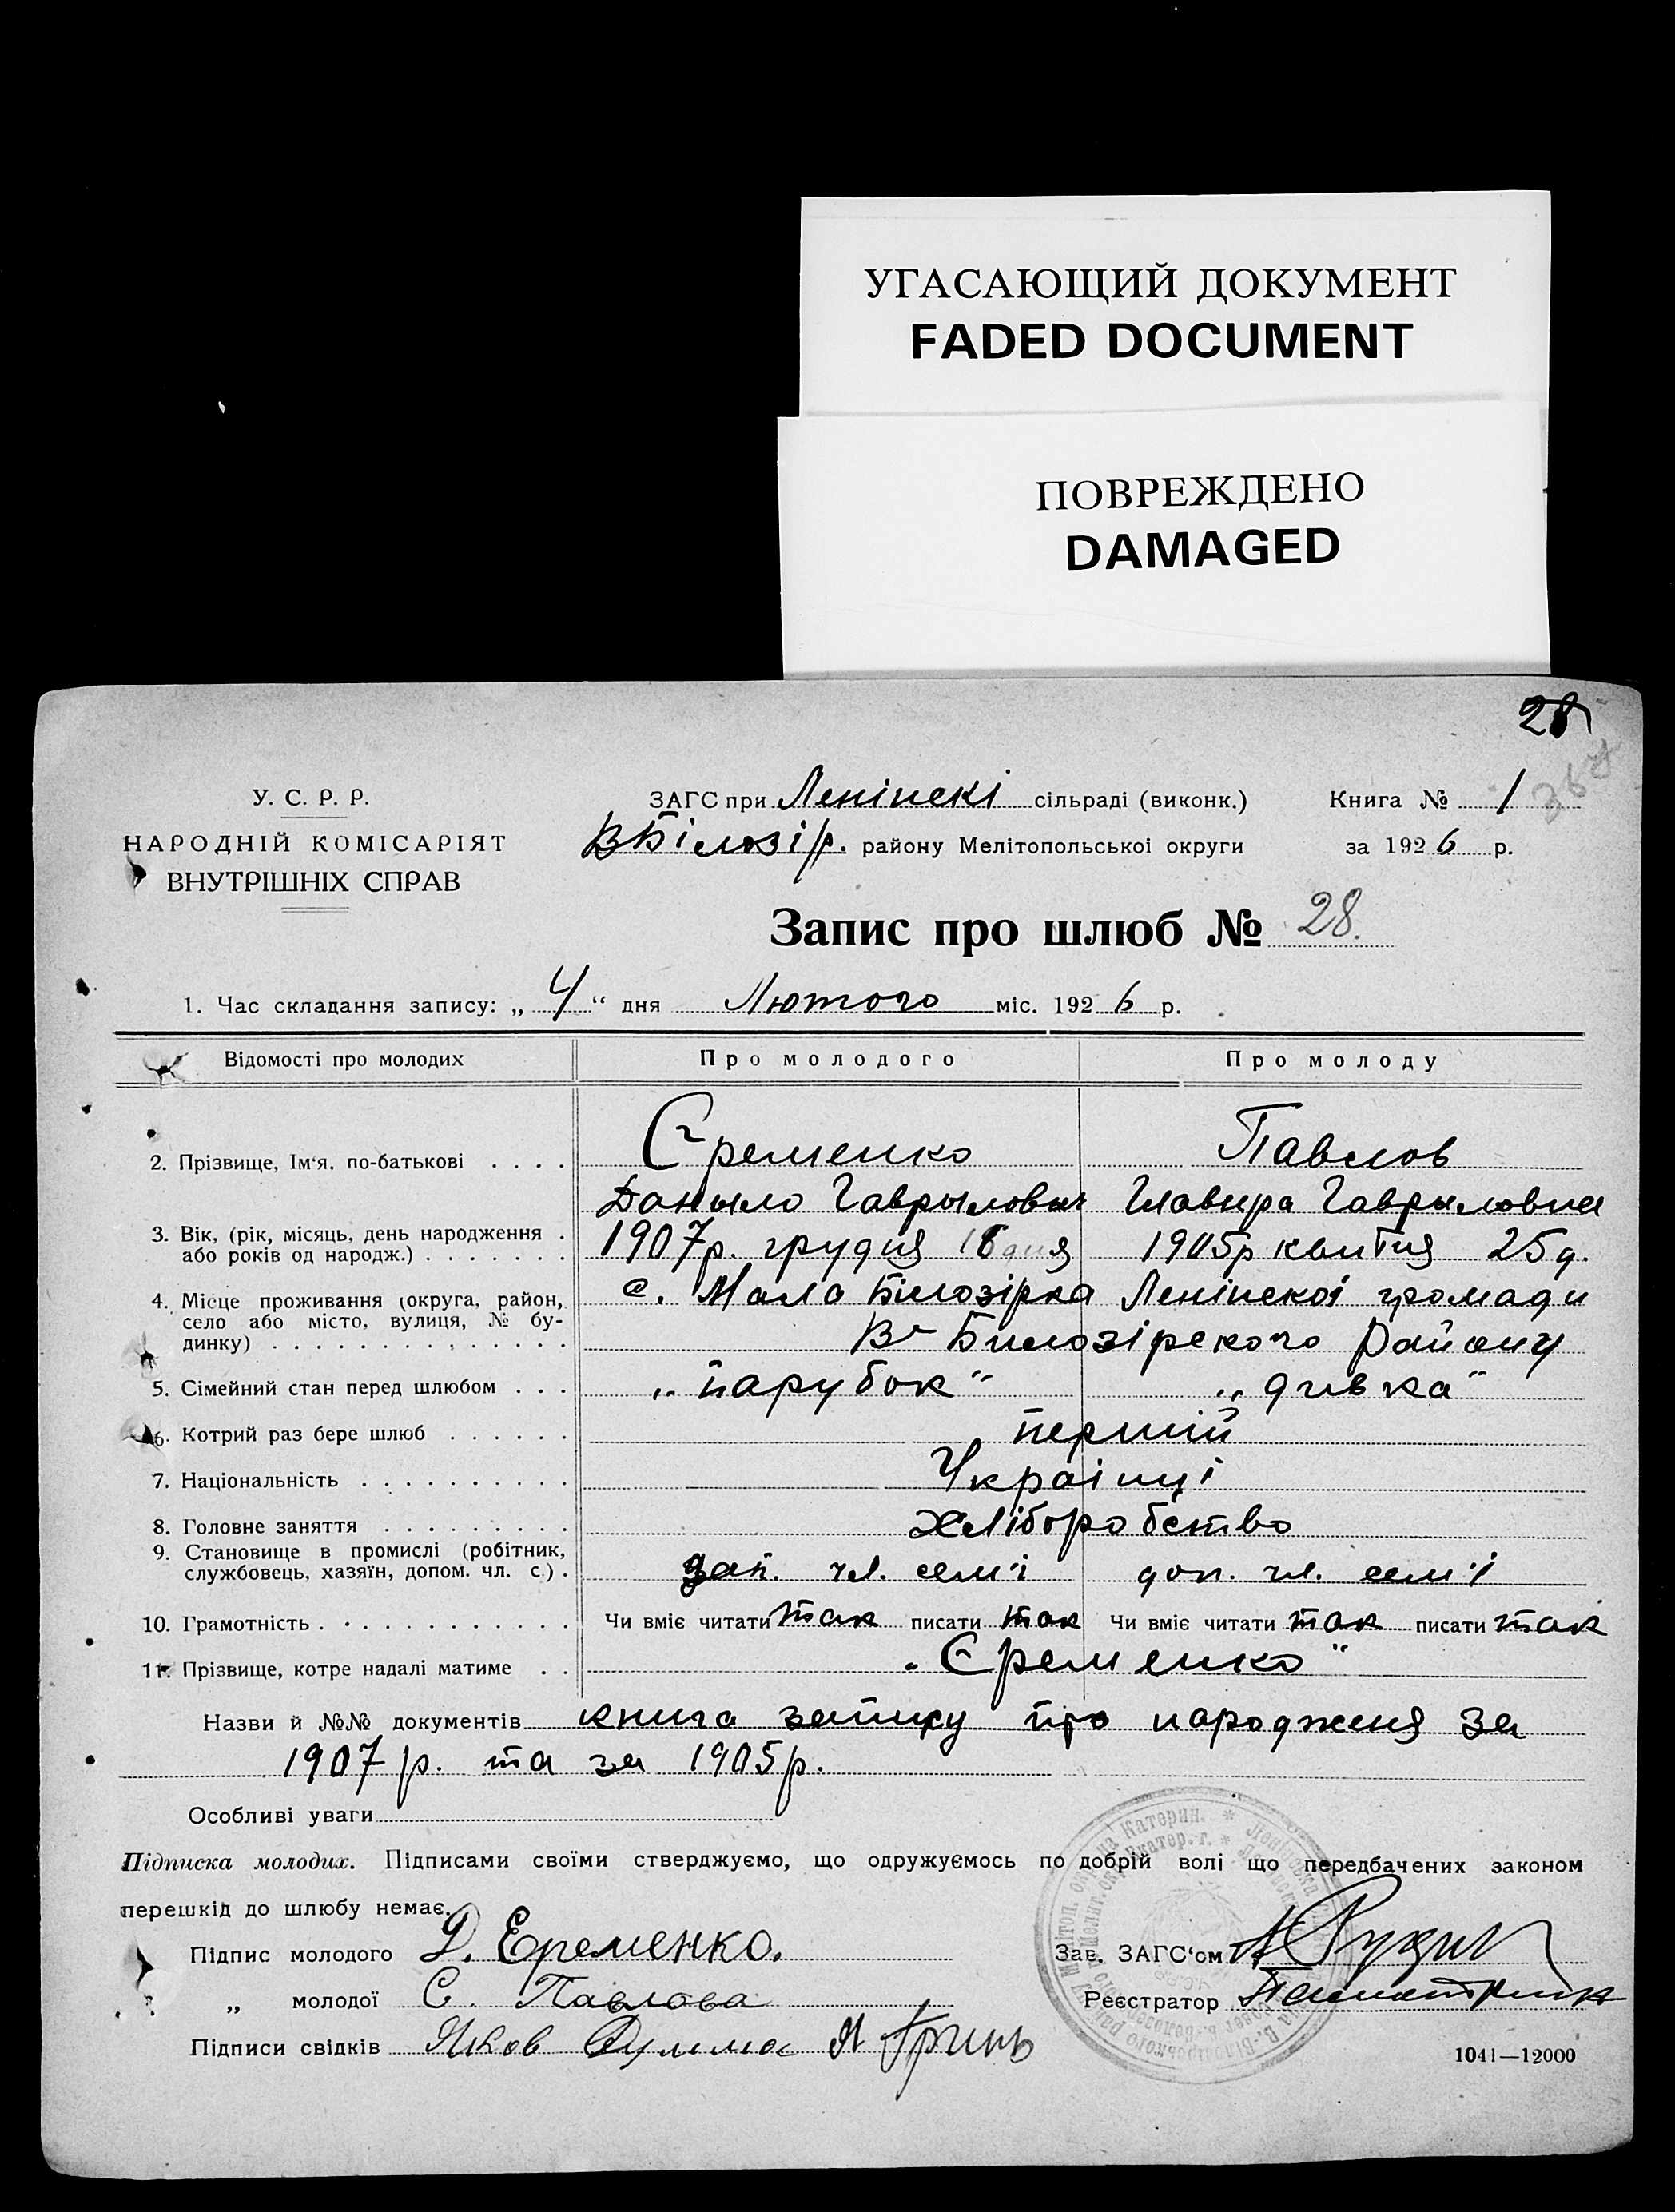 УГАСАЮЩИЙ ДОКУМЕНТ
FADED DOCUMENT
ПОВРЕЖДЕНО
DAMAGED
28
У. С. Р. Р.
НАРОДНІЙ КОМІСАРІЯТ
ВНУТРІШНІХ СПРАВ
ЗАГС при Ленінскі сільраді (виконк.) Книга № 1
ВБілозір. району Мелітопольської округи за 1926 р.
Запис про шлюб № 28.
1. Час складання запису: „ 4 “ дня Лютого міс. 1926 р.
Відомості про молодих Про молодого Про молоду
2. Прізвище, Ім‘я, по-батькові . . . . Єременко Павлов
Даныло Гаврылович Главира Гаврыловна
3. Вік, (рік, місяць, день народження . або років од народж.) . . . . . . . 1907р. грудня 18 дня 1905р квитня 25 д.
4. Місце проживання (округа, район, село або місто, вулиця, № будинку) . . . . . . . . . . . . . . с. Мала Білозірка Ленінскоі громади
В-Билозірского Району
5. Сімейний стан перед шлюбом . . . „парубок“ „дивка“
6. Котрий раз бере шлюб . . . . . . першій
7. Національність . . . . . . . . . . Украінці
8. Головне заняття . . . . . . . . . хліборобство
9. Становище в промислі (робітник, службовець, хазяїн, допом. чл. с.) . доп. чл. сем'і доп. чл. сем'і
10. Грамотність . . . . . . . . . . . . Чи вміє читати так писати так Чи вміє читати так писати так
11. Прізвище, котре надалі матиме . . „Єременко“
Назви й №№ документів книга запису про народженя за
1907 р. та за 1905р.
Особливі уваги
Підписка молодих. Підписами своїми стверджуємо, що одружуємось по добрій волі що передбачених законом
перешкід до шлюбу немає.
Підпис молодого Д. Еременко. Зав. ЗАГС‘ом
„ молодої С. Павлова Реєстратор
Підписи свідків Яков Дулма Я Гринь
1041—12000